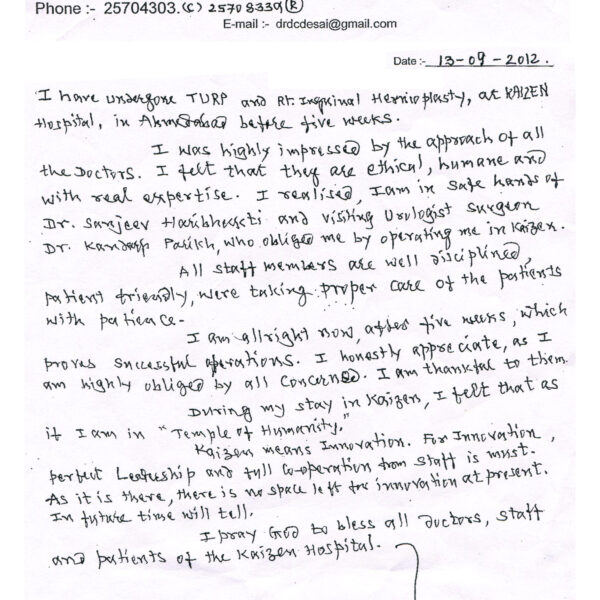 Phone :- 25704303.(C) 25708339(R)
E-mail :- drdcdesai@gmail.com
Date :- 13-09-2012.
I have undergone TURP and Rt. Inguinal Hernioplasty, at KAIZEN
Hospital, in Ahmedabad before five weeks.
I was highly impressed by the approach of all
the Doctors. I felt that they are ethical, humane and
with real expertise. I realised, I am in safe hands of
Dr. Sanjeev Haribhakti and visiting Urologist Surgeon
Dr. Kandarp Parikh, who obliged me by operating me in Kaizen.
All staff members are well disciplined,
patient friendly, were taking proper care of the patients
with patience.
I am allright now, after five weeks, which
proves successful operations. I honestly appreciate, as I
am highly obliged by all concerned. I am thankful to them.
During my stay in Kaizen, I felt that as
if I am in "Temple of Humanity."
Kaizen means Innovation. For Innovation,
perfect Leadership and full co-operation from staff is must.
As it is there, there is no space left for innovation at present.
In future time will tell.
I pray God to bless all doctors, staff
and patients of the Kaizen Hospital.